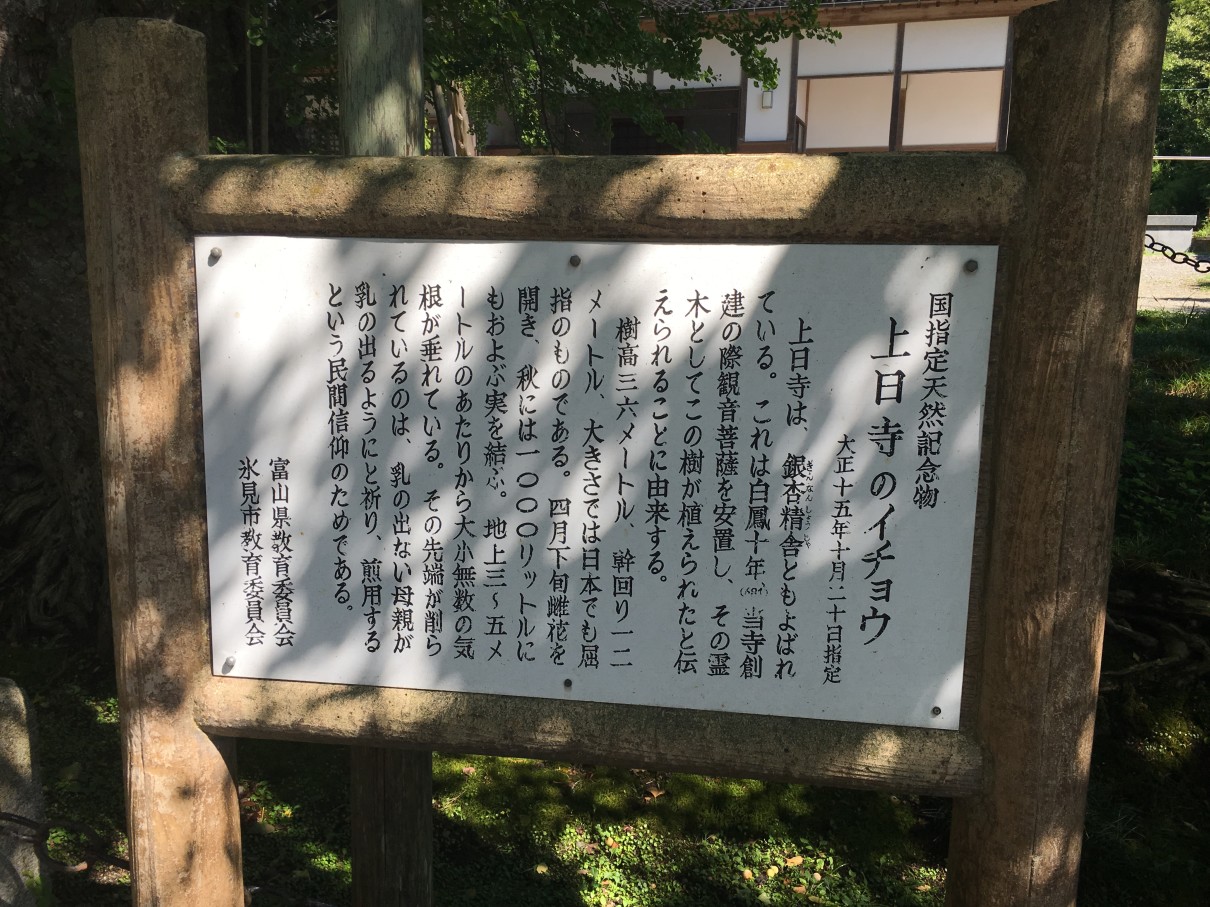 国指定天然記念物
上日寺のイチョウ
大正十五年十月二十日指定
上日寺は、銀杏精舎ともよばれ
ている。これは白鳳十年、当寺創
建の際観音菩薩を安置し、その霊
木としてこの樹が植えられたと伝
えられることに由来する。
樹高三六メートル、幹回り一二
メートル、大きさでは日本でも屈
指のものである。四月下旬雌花を
開き、秋には一〇〇〇リットルに
もおよぶ実を結ぶ。地上三〜五メ
ートルのあたりから大小無数の気
根が垂れている。その先端が削ら
れているのは、乳の出ない母親が
乳の出るようにと祈り、煎用する
という民間信仰のためである。
富山県教育委員会
氷見市教育委員会